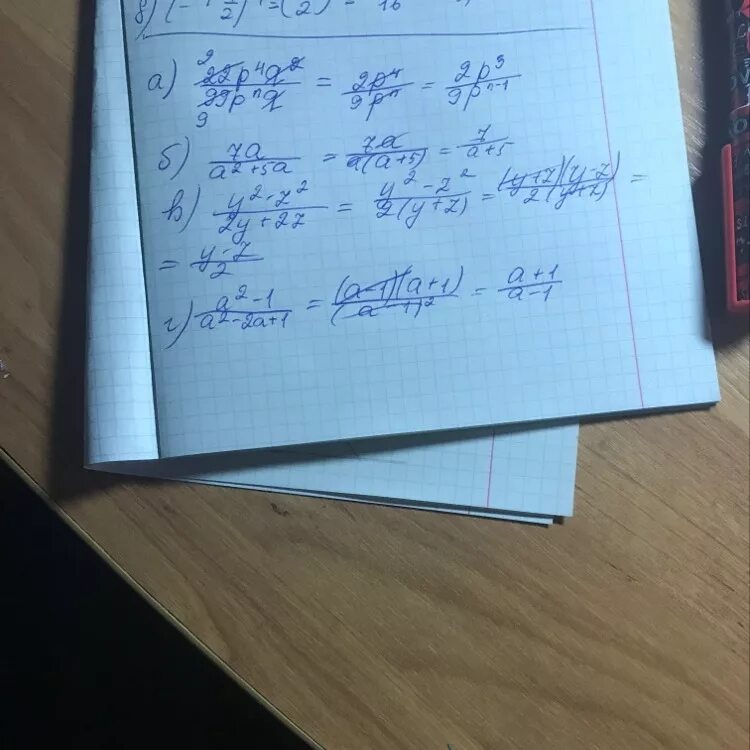 в) (- 1/2) = (2) = 16
а) 22p⁴q²/99pⁿq = 2p⁴/9pⁿ = 2p³/9pⁿ⁻¹
2
9
б) 7a/a²+5a = 7a/a(a+5) = 7/a+5
в) y²-z²/2y+2z = y²-z²/2(y+z) = (y+z)(y-z)/2(y+z) =
= y-z/2
г) a²-1/a²-2a+1 = (a-1)(a+1)/(a-1)² = a+1/a-1